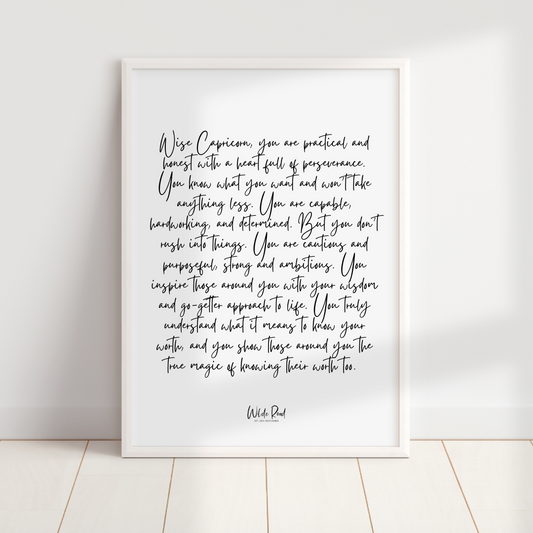 Wise Capricorn, you are practical and
honest with a heart full of perseverance.
You know what you want and won't take
anything less. You are capable,
hardworking, and determined. But you don't
rush into things. You are cautious and
purposeful, strong and ambitious. You
inspire those around you with your wisdom
and go-getter approach to life. You truly
understand what it means to know your
worth, and you show those around you the
true magic of knowing their worth too.
Wilde Road